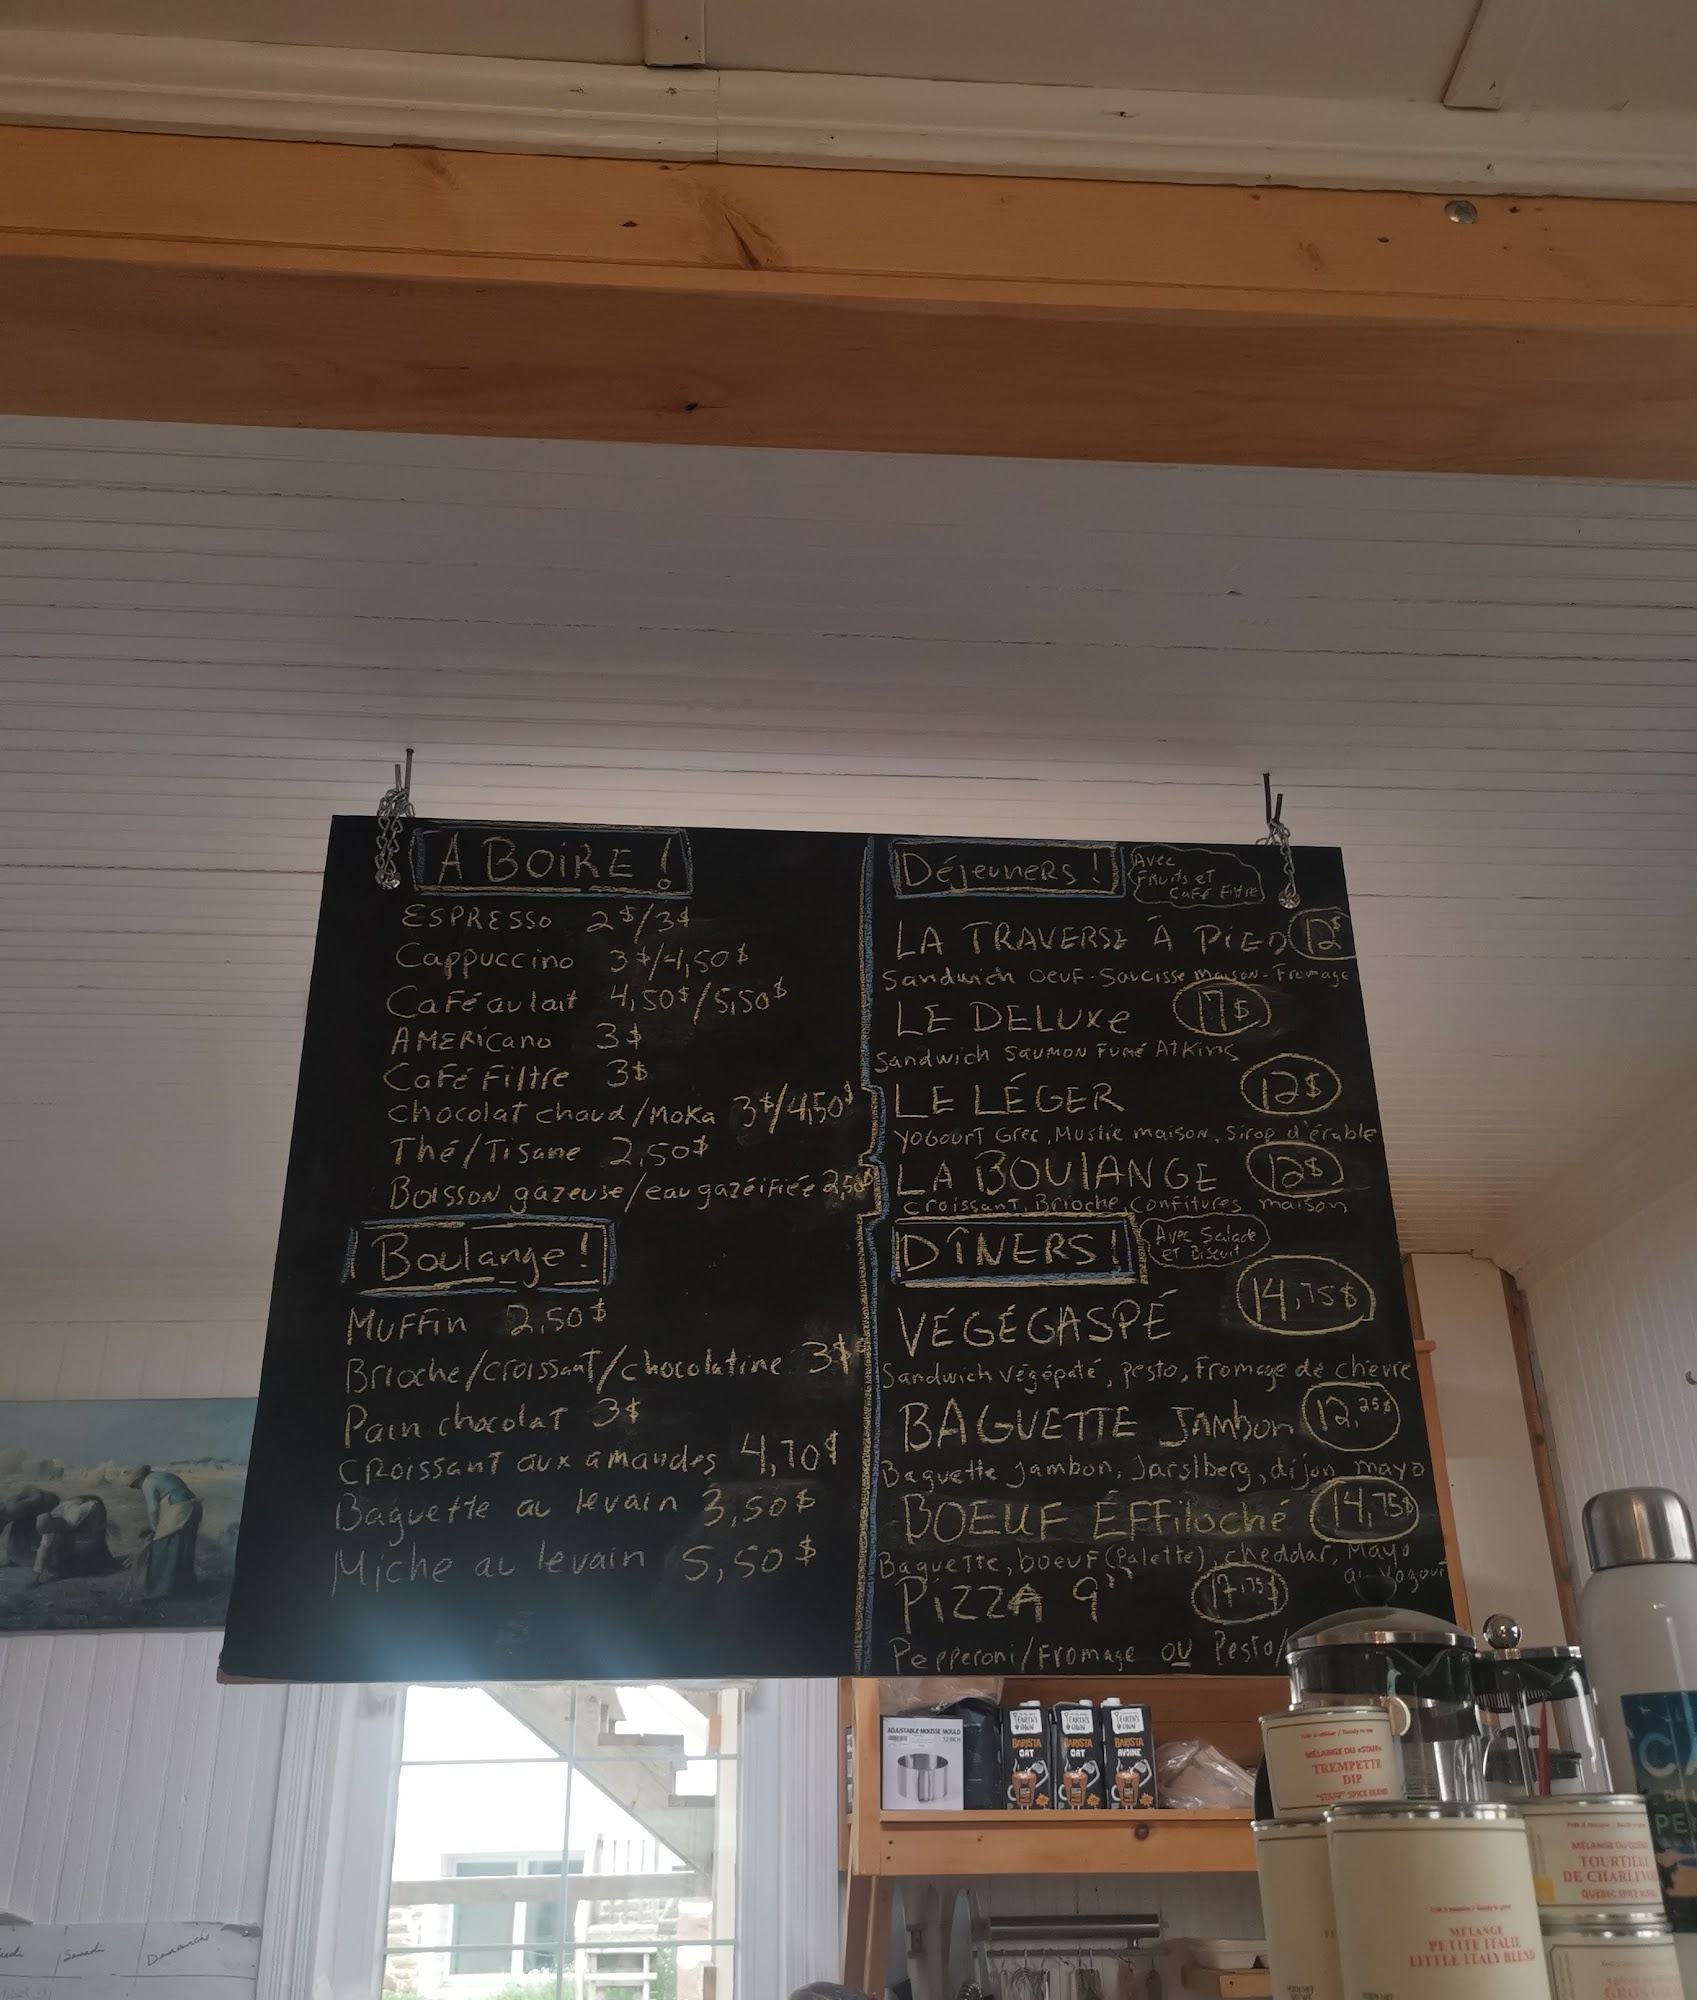 A BOIRE !
ESPRESSO 2$/3$
Cappuccino 3$/4,50$
Café au lait 4,50$/5,50$
AMERICANO 3$
Café Filtre 3$
chocolat chaud/Moka 3$/4,50$
Thé/Tisane 2,50$
Boisson gazeuse/eau gazéifiée 2,50$
Boulange !
Muffin 2,50$
Brioche/croissant/chocolatine 3$
Pain chocolat 3$
Croissant aux amandes 4,70$
Baguette au levain 3,50$
Miche au levain 5,50$
Déjeuners !
Avec
Fruits et
Café Filtre
LA TRAVERSE À PIED 12$
Sandwich Oeuf-Saucisse maison-Fromage
LE DELUXE 17$
Sandwich Saumon Fumé Atkins
LE LÉGER 12$
Yogourt Grec, Muslie maison, Sirop d'érable
LA BOULANGE 12$
Croissant, Brioche, Confitures maison
DÎNERS !
Avec Salade
et Biscuit
VÉGÉGASPÉ 14,75$
Sandwich végépaté, pesto, Fromage de chievre
BAGUETTE Jambon 12,25$
Baguette jambon, Jarslberg, dijon, mayo
BOEUF ÉFFiloché 14,75$
Baguette, boeuf (palette), cheddar, Mayo
au yogourt
PIZZA 9" 17,75$
Pepperoni/Fromage OU Pesto/
ADJUSTABLE MOUSSE MOULD
12 INCH
EARTH'S OWN
BARISTA
OAT
EARTH'S OWN
BARISTA
OAT
EARTH'S OWN
BARISTA
AVOINE
MÉLANGE DU «STAFF»
TREMPETTE
DIP
"STAFF" SPICE BLEND
MÉLANGE
PETITE ITALIE
LITTLE ITALY BLEND
TOURTIÈRE
DE CHARLEVOIX
Samedi
Dimanche